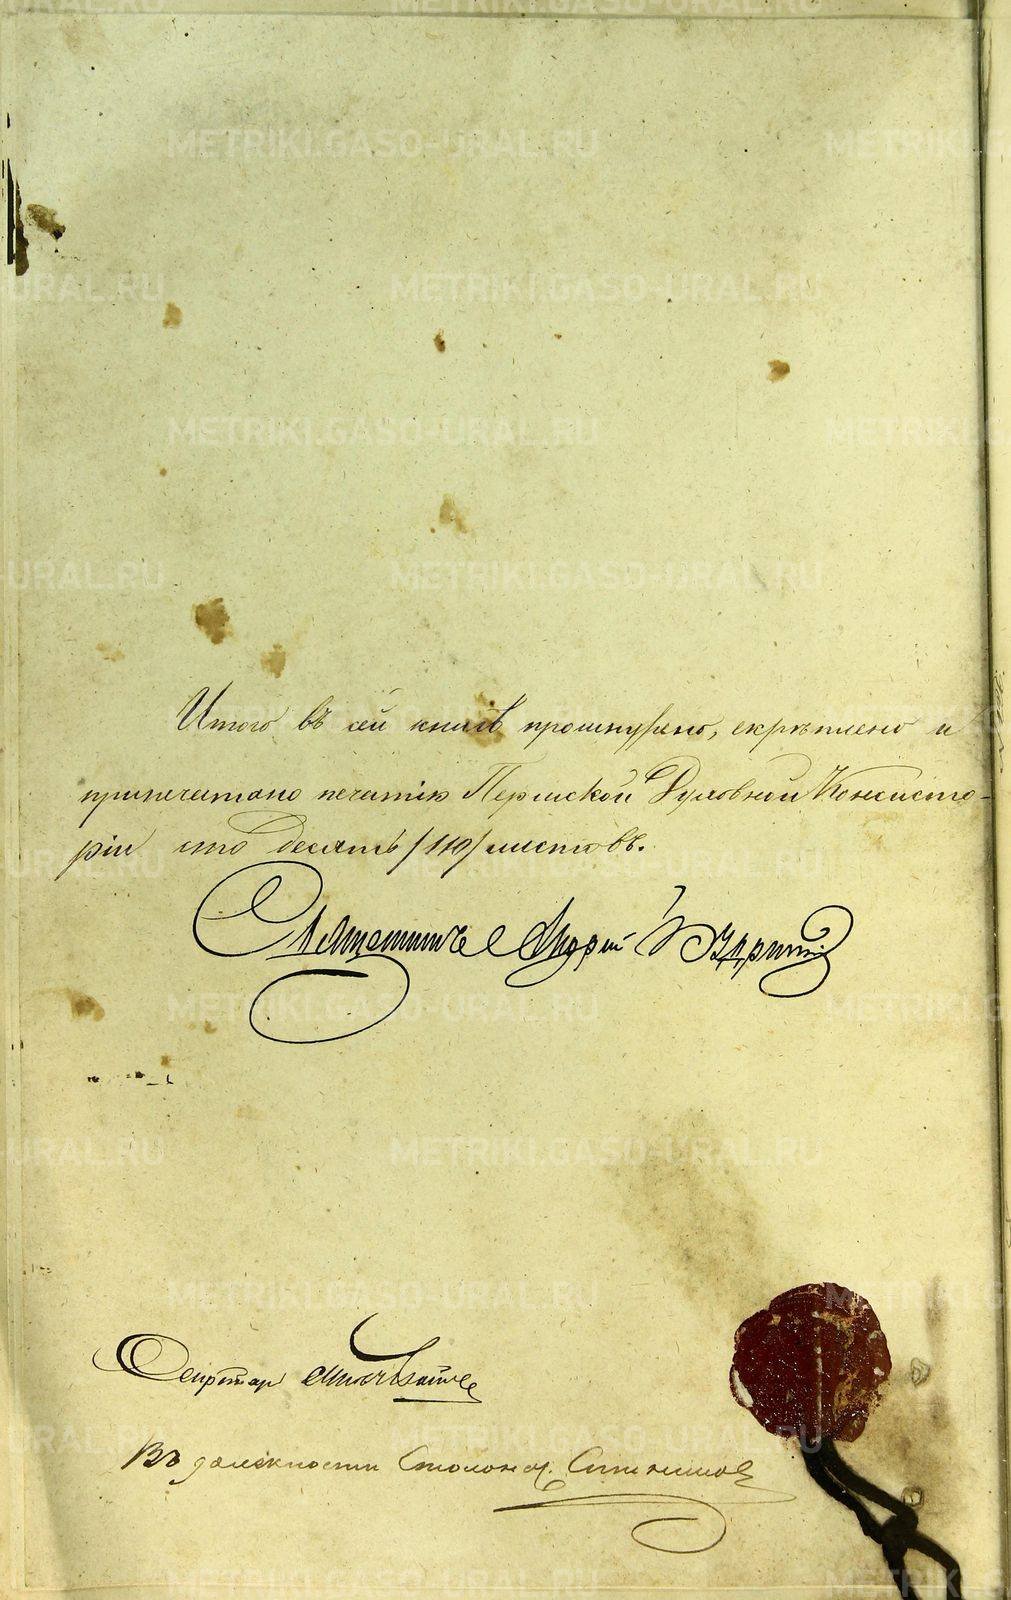 METRIKI.GASO-URAL.RU
Итого въ сей книгѣ прошнуровано, скрѣплено и
припечатано печатію Пермской Духовной Консисто-
ріи сто десять /110/ листовъ.
Священникъ Андрей
Секретарь
Въ должности Столонач.